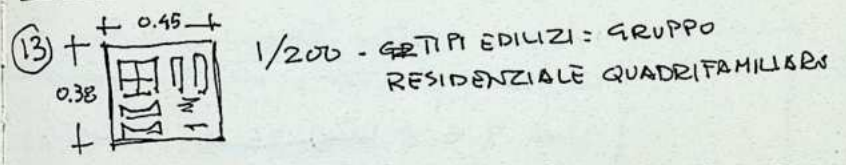 13
0.45
0.38
1/200 - TIPI EDILIZI: GRUPPO
RESIDENZIALE QUADRIFAMILIARE